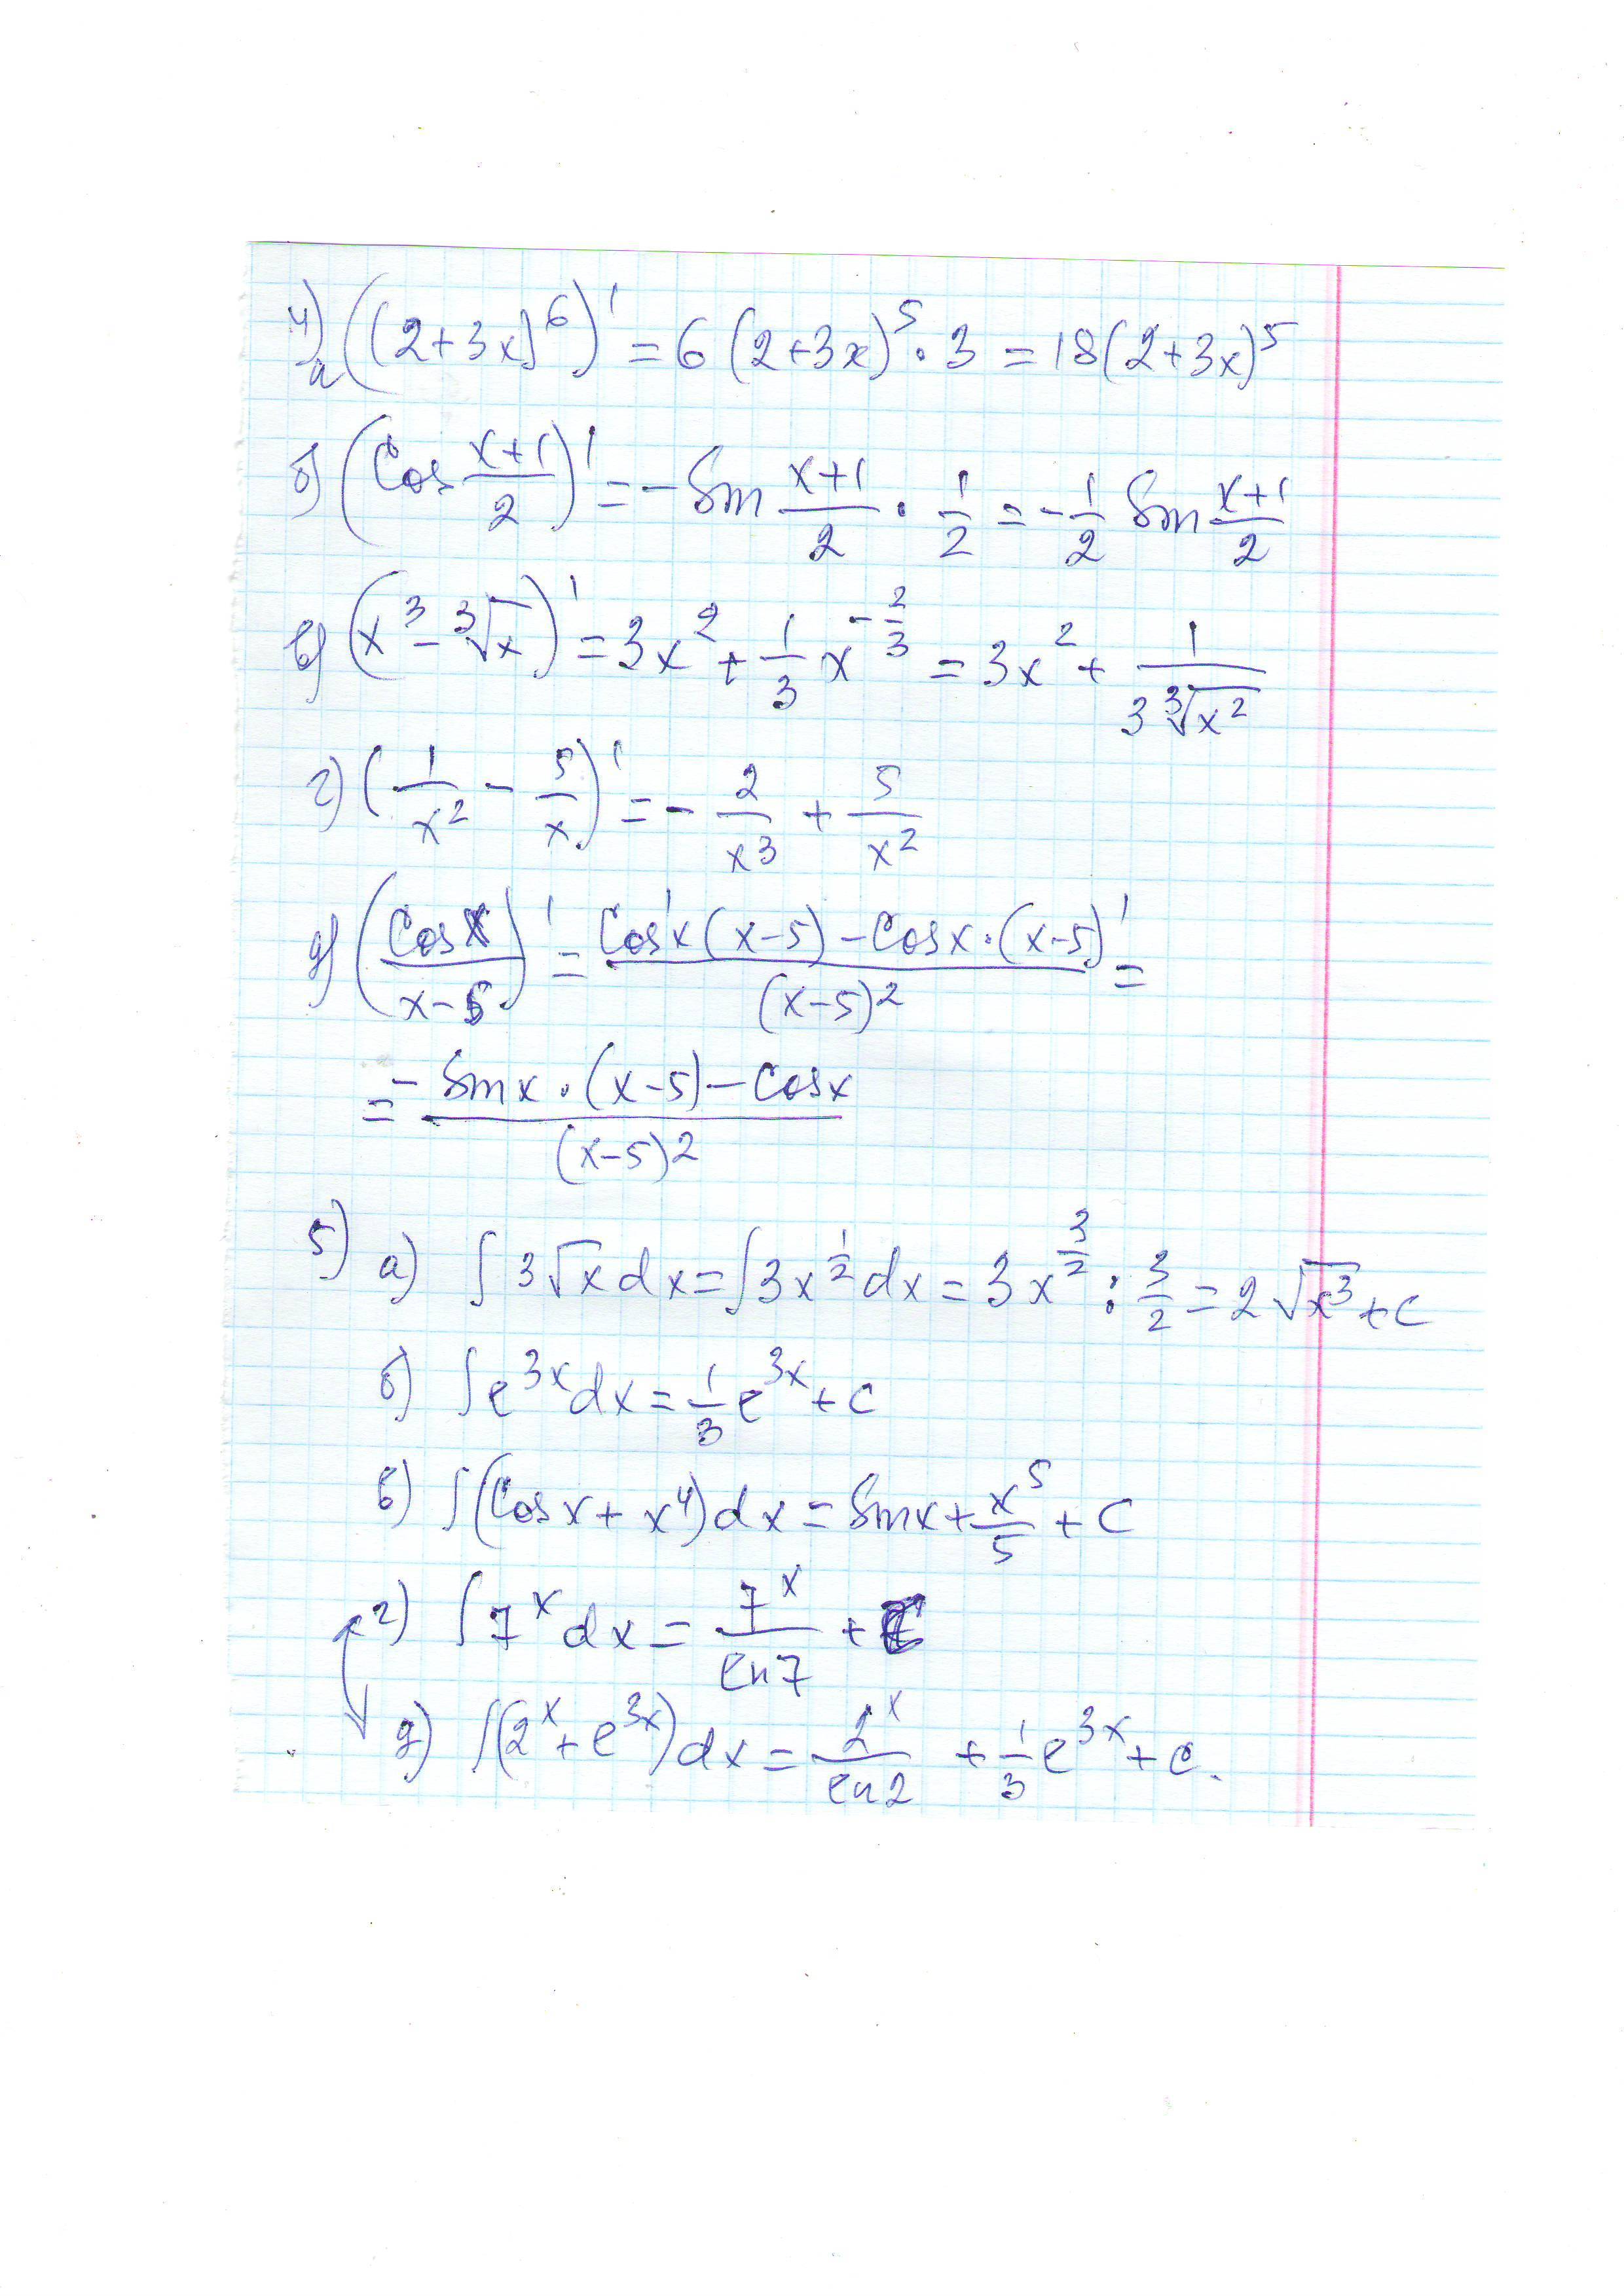 4) а ((2+3x)^6)' = 6(2+3x)^5 · 3 = 18(2+3x)^5
б) (Cos (x+1)/2)' = -Sin (x+1)/2 · 1/2 = -1/2 Sin (x+1)/2
в) (x^3 - ∛x)' = 3x^2 + 1/3 x^(-2/3) = 3x^2 + 1/(3∛(x^2))
г) (1/x^2 - 5/x)' = - 2/x^3 + 5/x^2
д) (Cosx/(x-5))' = (Cos'x(x-5) - Cosx·(x-5)')/(x-5)^2 =
= (-Sinx·(x-5) - Cosx)/(x-5)^2
5) а) ∫3√x dx = ∫3x^(1/2) dx = 3x^(3/2) : 3/2 = 2√(x^3) + C
б) ∫e^(3x) dx = 1/3 e^(3x) + C
в) ∫(Cosx + x^4)dx = Sinx + x^5/5 + C
г) ∫7^x dx = 7^x/ln7 + C
д) ∫(2^x + e^(3x))dx = 2^x/ln2 + 1/3 e^(3x) + C.